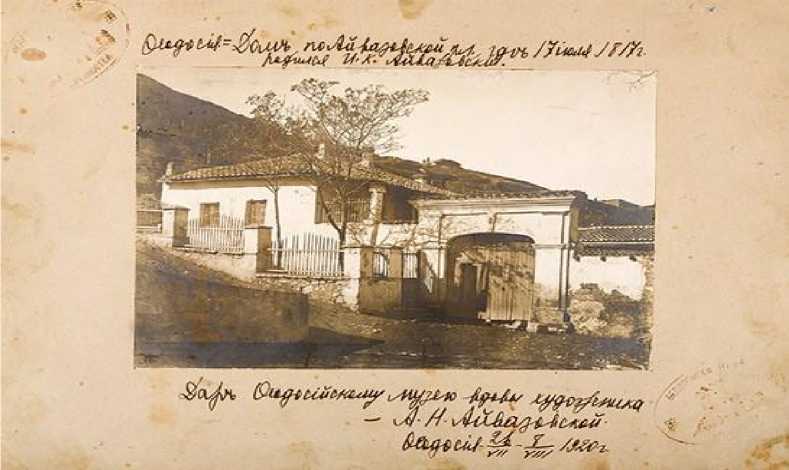 Ѳеодосія = Домъ по Айвазовской ул. гдѣ 17 іюля 1817 г.
родился И. К. Айвазовскій.
Даръ Ѳеодосійскому музею вдовы художника
— А. Н. Айвазовской.
Ѳеодосія 26/VII - 8/VIII 1920 г